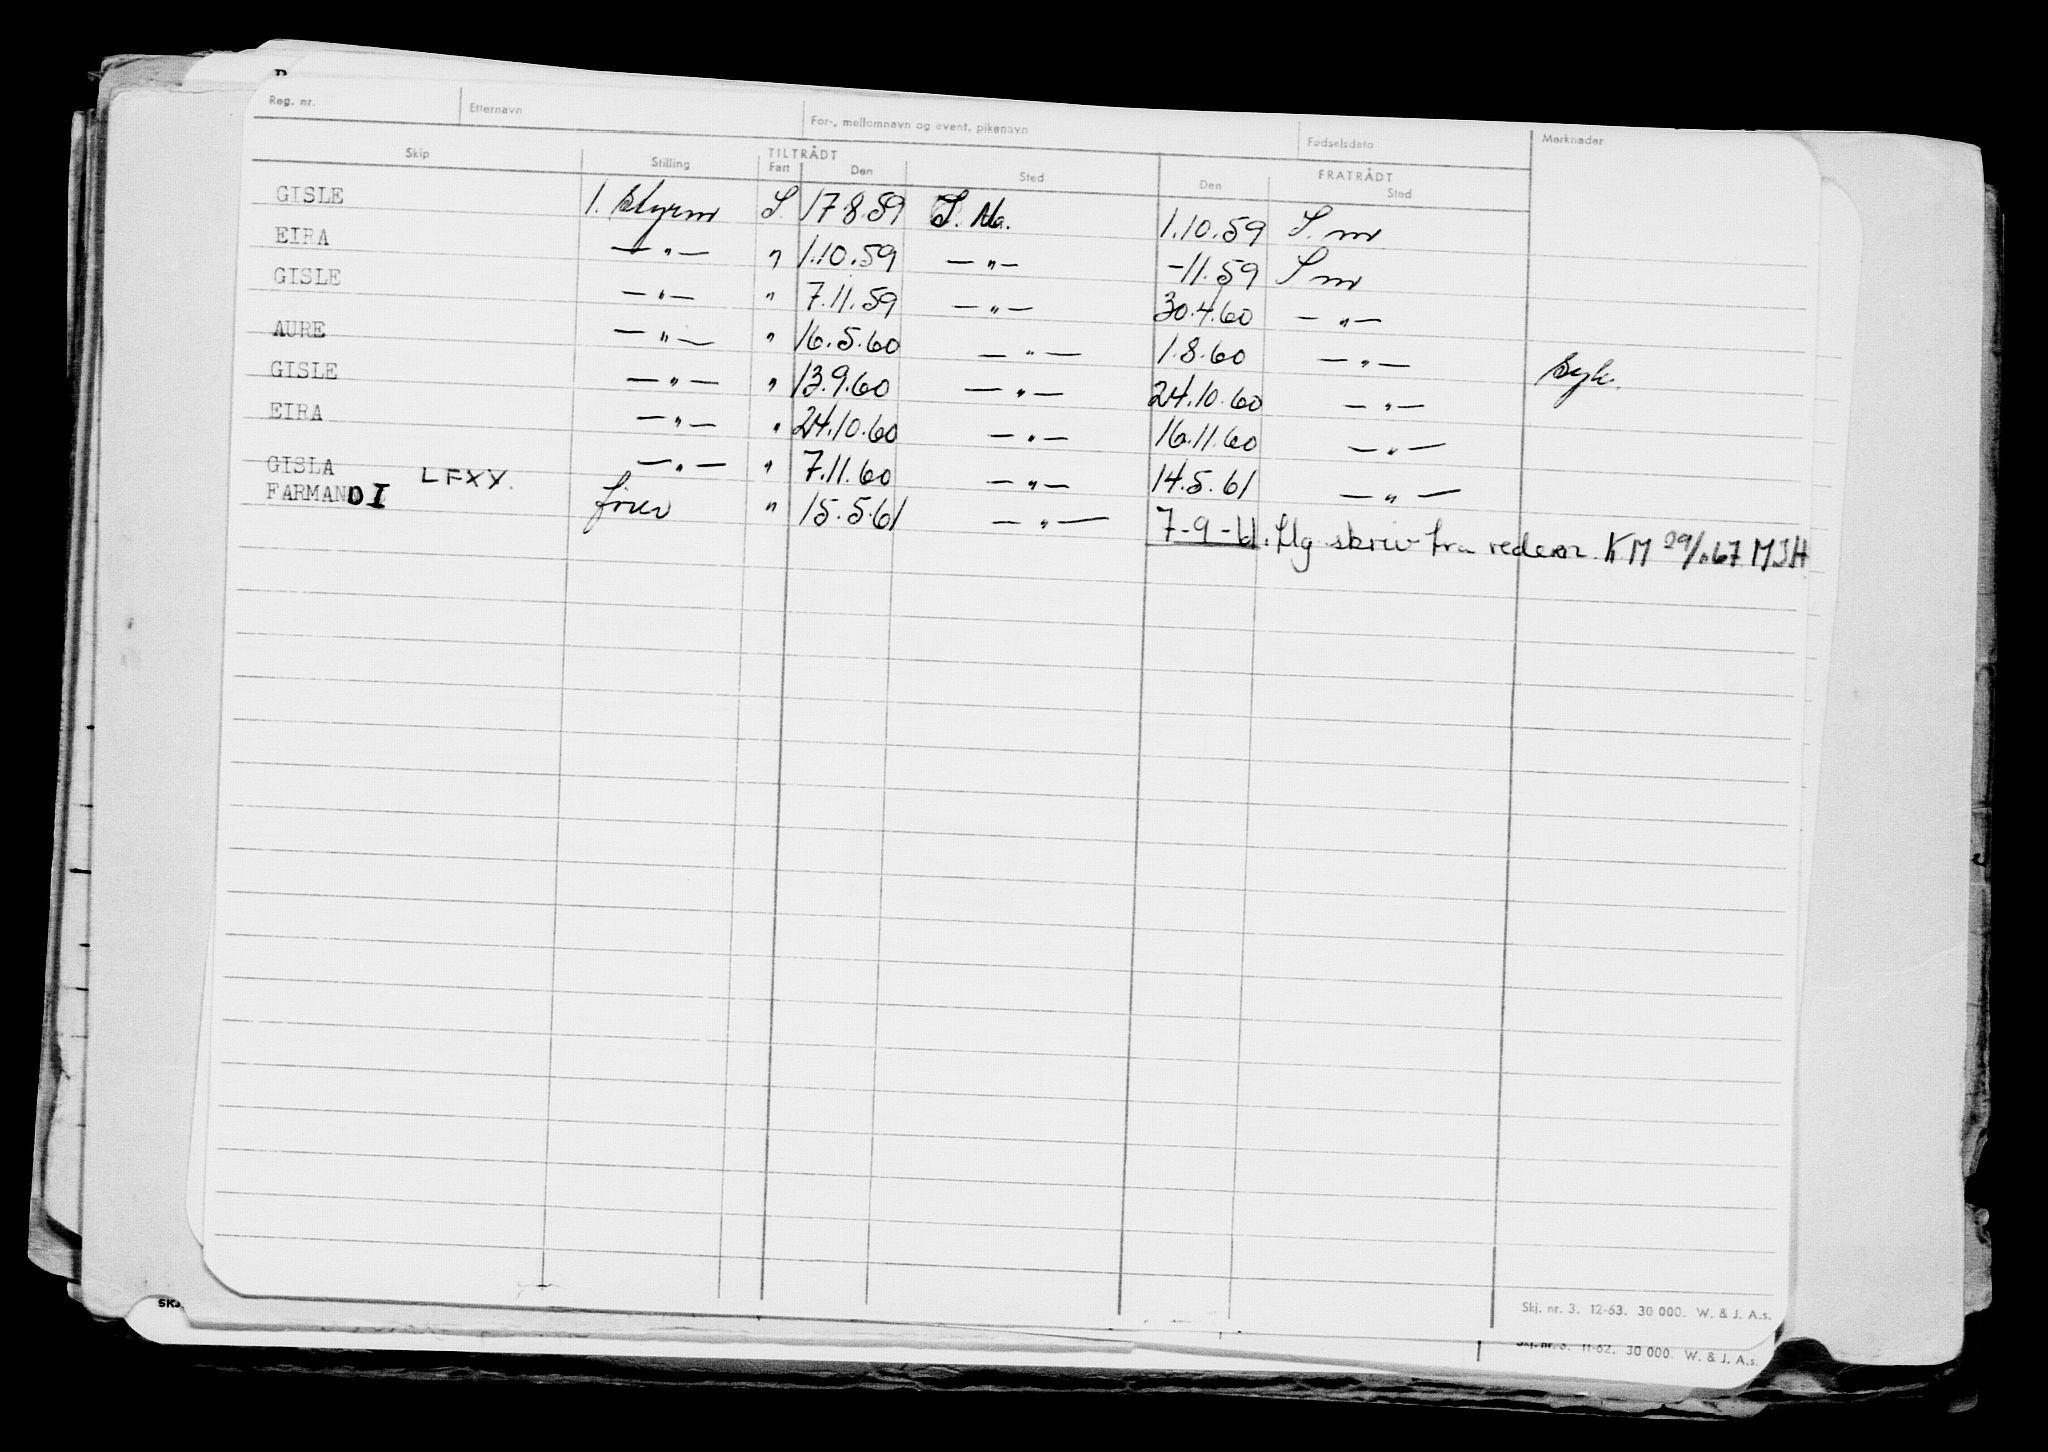 Reg. nr. Etternavn For-, mellomnavn og event. pikenavn Fødselsdato Merknader
Skip Stilling TILTRÅDT FRATRÅDT
Fart Den Sted Den Sted
GISLE 1. styrm S. 17.8.59 S. Ma. 1.10.59 S. m
EIRA — " — " 1.10.59 — " — -11.59 S m
GISLE — " — " 7.11.59 — " — 30.4.60 — " —
AURE — " — " 16.5.60 — " — 1.8.60 — " — Syk.
GISLE — " — " 13.9.60 — " — 24.10.60 — " —
EIRA — " — " 24.10.60 — " — 16.11.60 — " —
GISLA — " — " 7.11.60 — " — 14.5.61 — " —
FARMAND I LFXX. " 15.5.61 — " — 7-9-61. Ifg skriv fra rederi. KM MJH
Skj. nr. 3. 12-63. 30 000. W. & J. A.s.
Skj. nr. 3. 11-62. 30 000. W. & J. A.s.